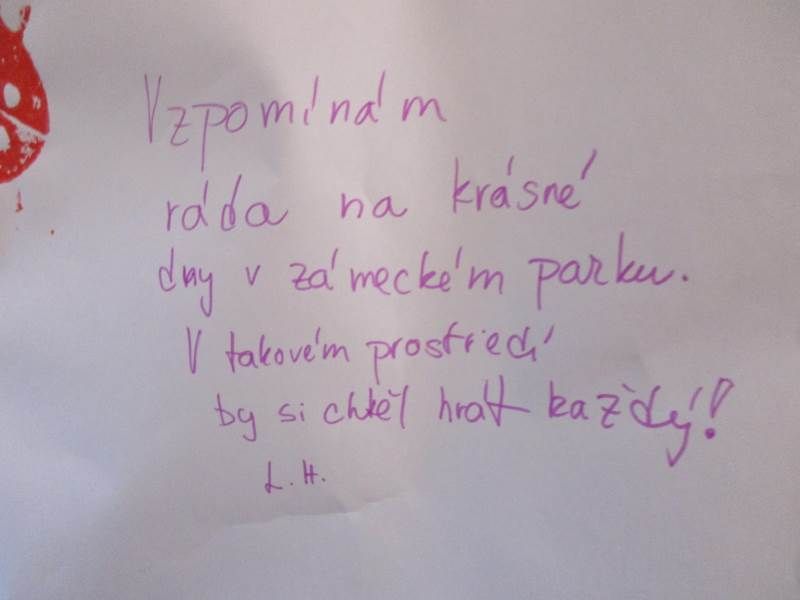 Vzpomínám
ráda na krásné
dny v zámeckém parku.
V takovém prostředí
by si chtěl hrát každý!
L.H.